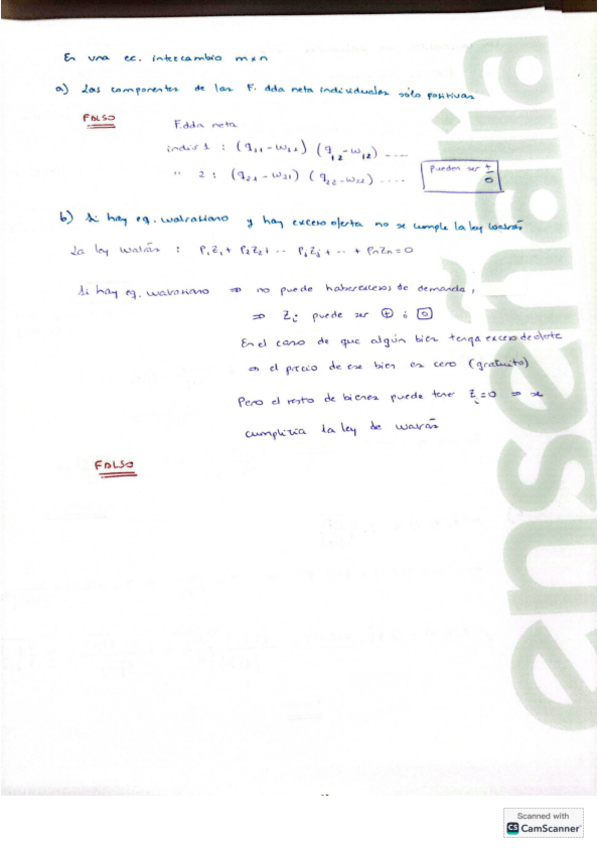 En una ec. intercambio m x n
a) Las componentes de las F. dda neta individuales sólo positivas
FALSO
F.dda neta
indiv 1 : (q11 - w11) (q12 - w12) ....
" 2 : (q21 - w21) (q22 - w22) ....
Pueden ser ±
0
b) Si hay eq. walrasiano y hay exceso oferta no se cumple la ley walrás
La ley walrás : P1Z1 + P2Z2 + .. PjZj + .. + PnZn = 0
Si hay eq. walrasiano ⇒ no puede haber excesos de demanda,
⇒ Zi puede ser ⊕ ó 0
En el caso de que algún bien tenga exceso de oferta
⇒ el precio de ese bien es cero (gratuito)
Pero el resto de bienes puede tener Zi = 0 ⇒ se
cumpliría la ley de walrás
FALSO
enseñalia
Scanned with
CS CamScanner